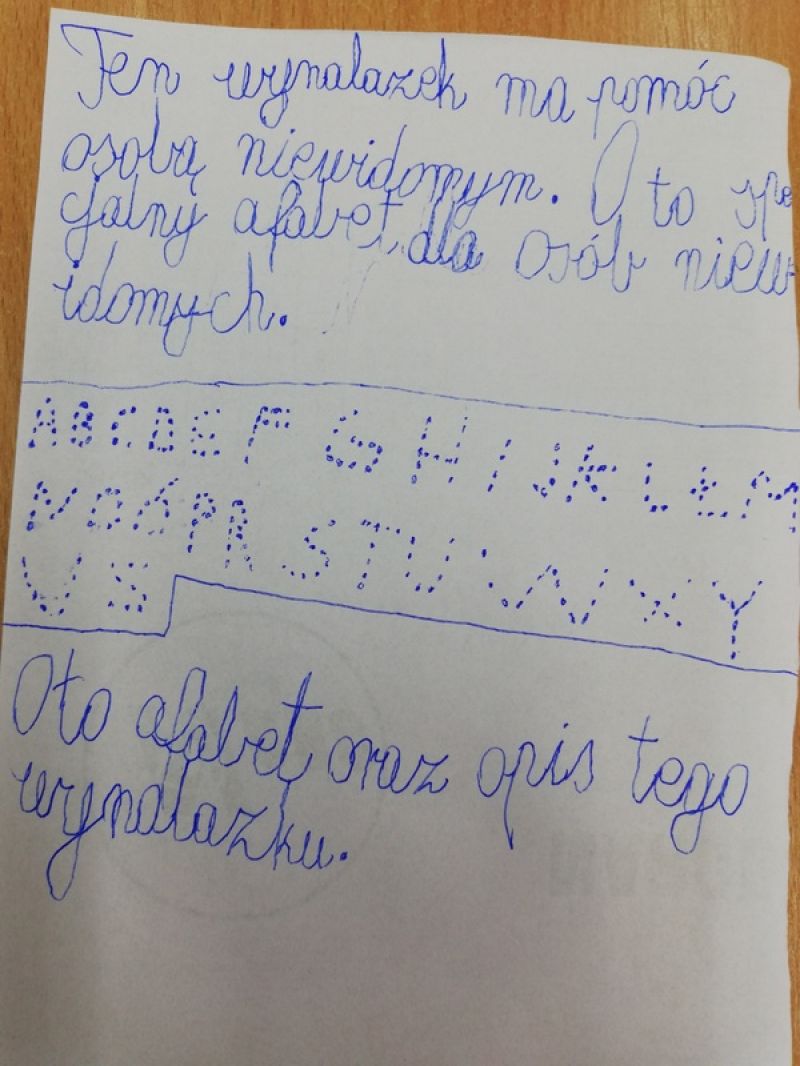 Ten wynalazek ma pomóc
osobą niewidomym. O to spe
cjalny afabet, dla osób niew
idomych.
A B C D E F G H I J K L Ł M
N O Ó P R S T U W X Y
U S
Oto afabet oraz opis tego
wynalazku.